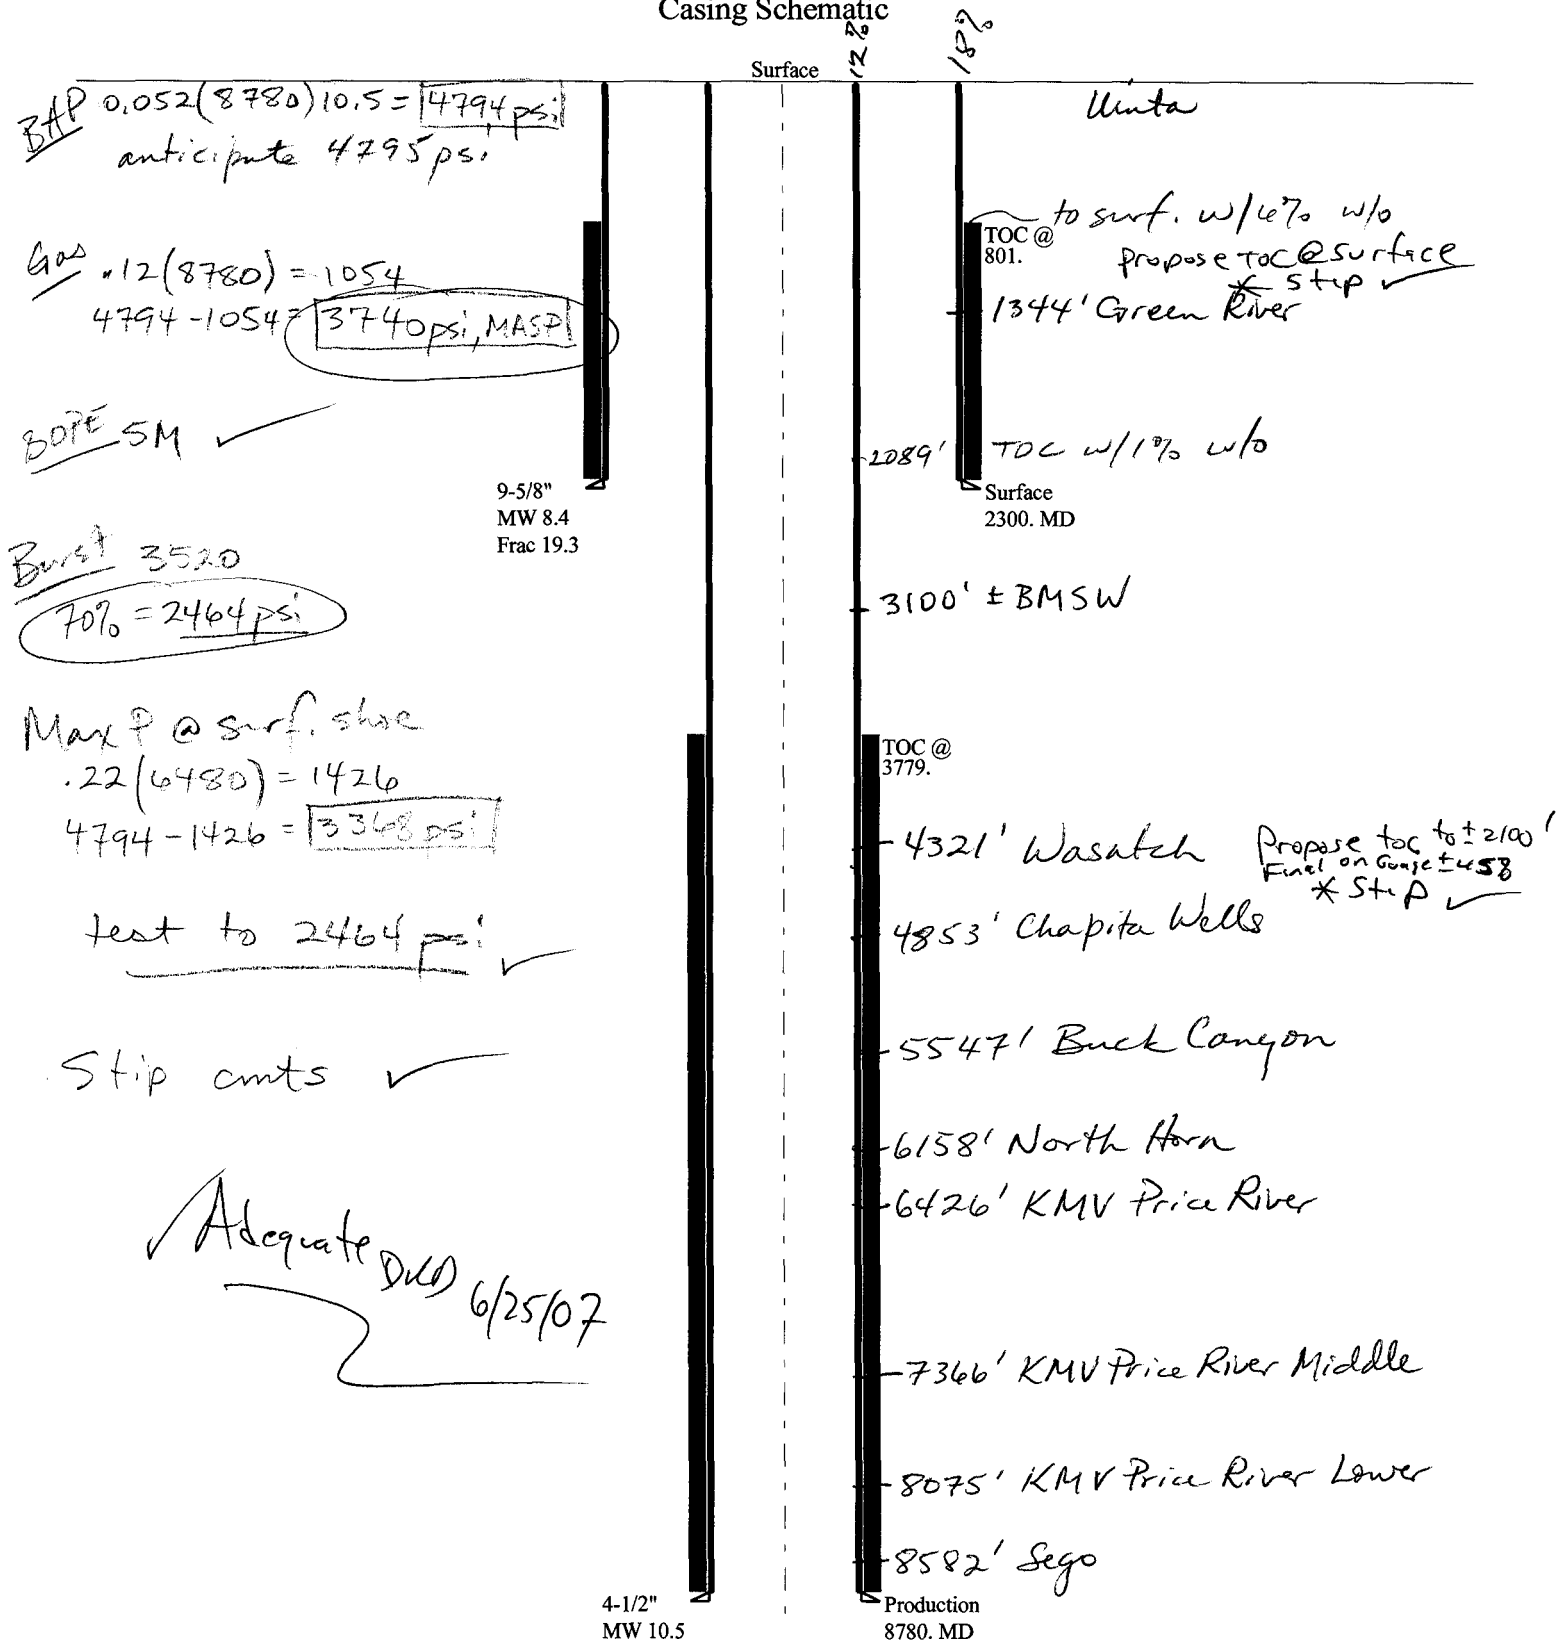 Casing Schematic
12%
18%
Surface
BHP 0.052(8780)10.5= 4794 psi
anticipate 4795 psi
Gas .12(8780) = 1054
4794-1054= 3740psi, MASP
BOPE 5M ✓
9-5/8"
MW 8.4
Frac 19.3
Burst 3520
70% = 2464 psi
Max P @ surf. shoe
.22(6480) = 1426
4794-1426 = 3368 psi
test to 2464 psi ✓
Stip cmts ✓
✓ Adequate DKD 6/25/07
4-1/2"
MW 10.5
Uinta
to surf. w/6% w/o
TOC @
801.
propose TOC @ surface
* Stip ✓
1344' Green River
2089' TOC w/1% w/o
Surface
2300. MD
3100' ± BMSW
TOC @
3779.
4321' Wasatch
Propose toc to ±2100'
Final on Guage
* Stip ✓
4853' Chapita Wells
5547' Buck Canyon
6158' North Horn
6426' KMV Price River
7366' KMV Price River Middle
8075' KMV Price River Lower
8582' Sego
Production
8780. MD